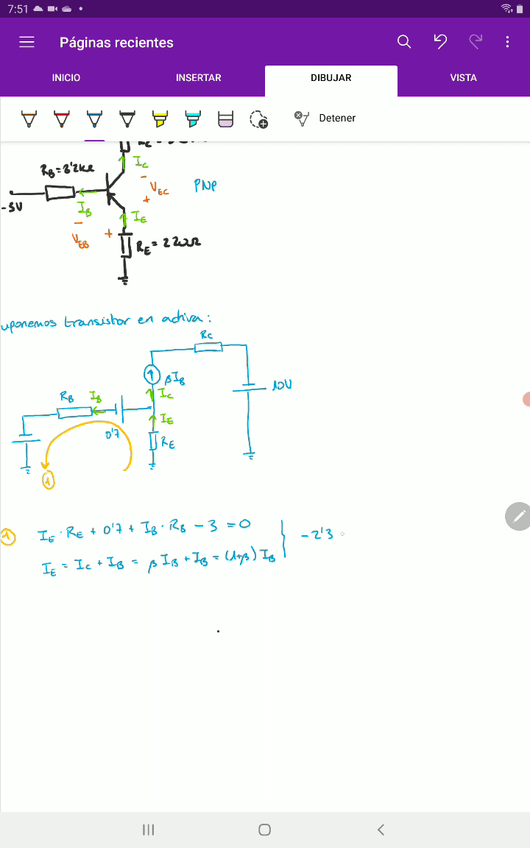 7:51
Páginas recientes
INICIO INSERTAR DIBUJAR VISTA
Detener
RB = 8'2kΩ
IC
-
VEC
+
PNP
-5V
IB
-
VEB
+
IE
RE = 220Ω
uponemos transistor en activa:
RC
βIB
IC
10V
RB IB
0'7
IE
RE
1
1 IE · RE + 0'7 + IB · RB - 3 = 0
IE = IC + IB = β IB + IB = (1+β) IB } -2'3